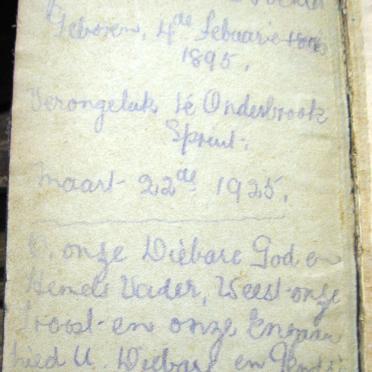 Geboren, 4de Febuarie
1895.
Verongeluk te Onderbrook
Spruit.
Maart 22de 1925.
O, onze Diebare God en
Hemels Vader, Weest onze
Troost en onze
U. Diebare en